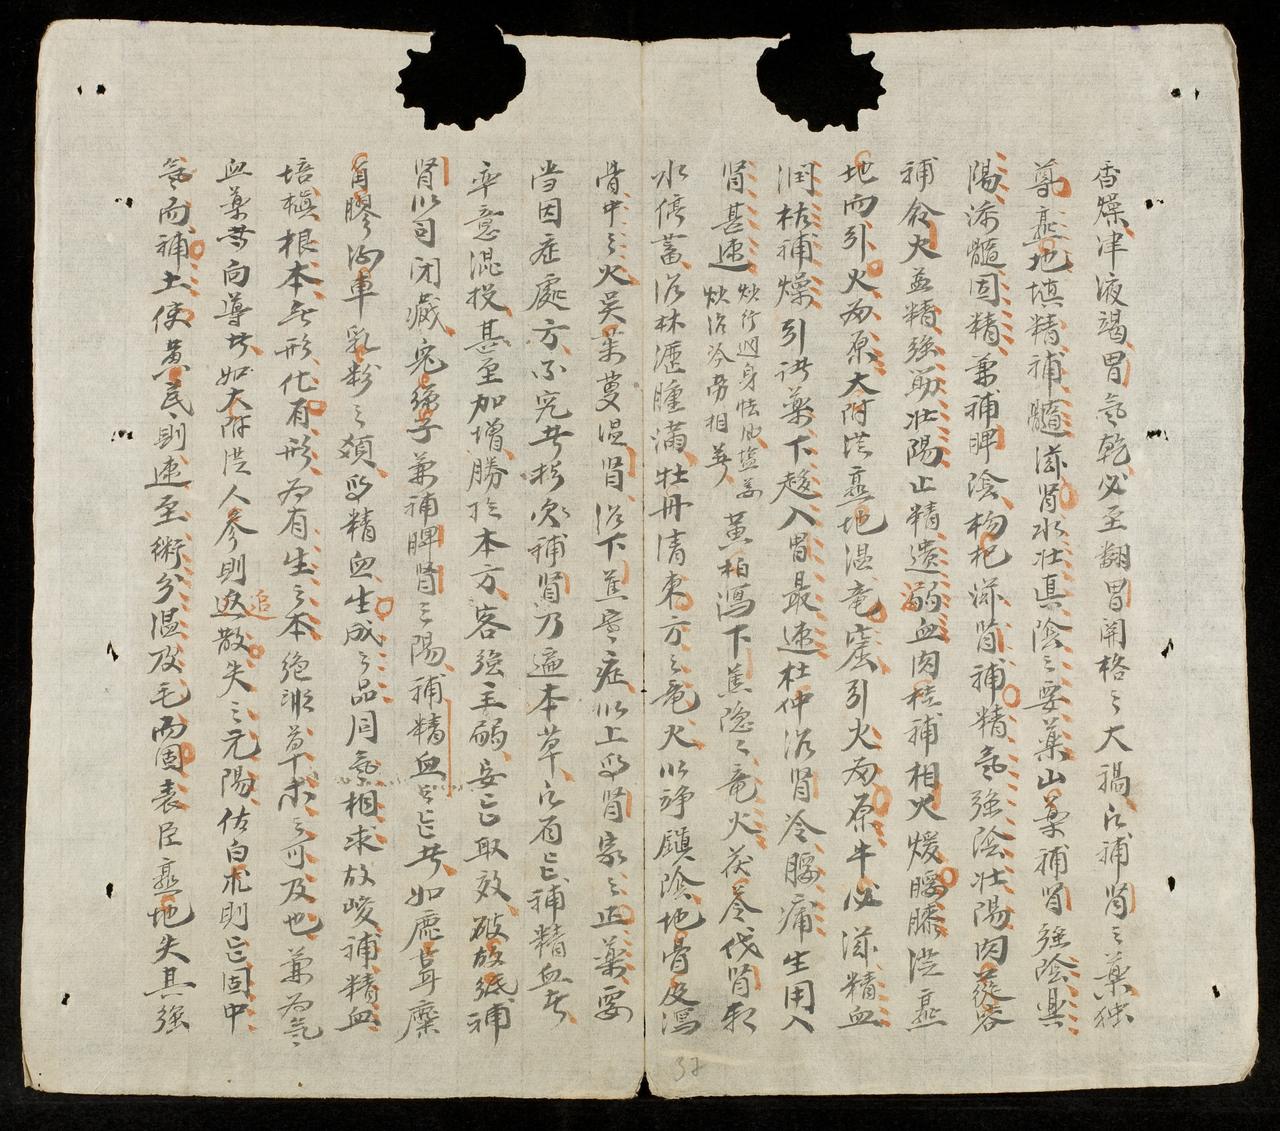 香燥津液竭胃氣乾必至翻胃開格之大禍之補腎之藥独
尊熟地填精補髓滋腎水壮真陰之要藥山藥補腎強陰興
陽添髓固精兼補脾陰枸杞滋腎補精氣強陰壮陽肉蓯蓉
補命火益精強筋壮陽止精遺弱血肉桂補相火煖腰膝従熟
地而引火而原大附従熟地温竜窟引火而原牛必滋精血
潤枯補燥引諸藥下趍入胃最速杜仲治腎冷腰痛生用入
腎甚速
炒行週身怯风塩姜
炒治冷劳相等
黄柏瀉下蕉隐之竜火茯苓伐腎邪
水停蓄治林瀝腫滿牡丹清東方之竜火以静鎮陰地骨皮瀉
骨中之火吴茱萸温腎治下蕉寒症以上為腎家之正藥要
当因症處方不究其指次補腎乃遍本草之有曰補精血者
率意混投甚至加增勝於本方客強主弱妄曰取效破故纸補
腎以司闭藏兔絲子兼補脾腎之陽補精血者曰其如鹿茸麋
角膠河車乳粉之類為精血生成之品同氣相求故峻補精血
培植根本无形化有形为有生之本絶非草木之可及也兼为氣
血藥其向導其如大附従人參則追散失之元陽佐白朮則曰固中
氣而補土使黄芪則速至術分温及毛而固表臣熟地失其強
追
37